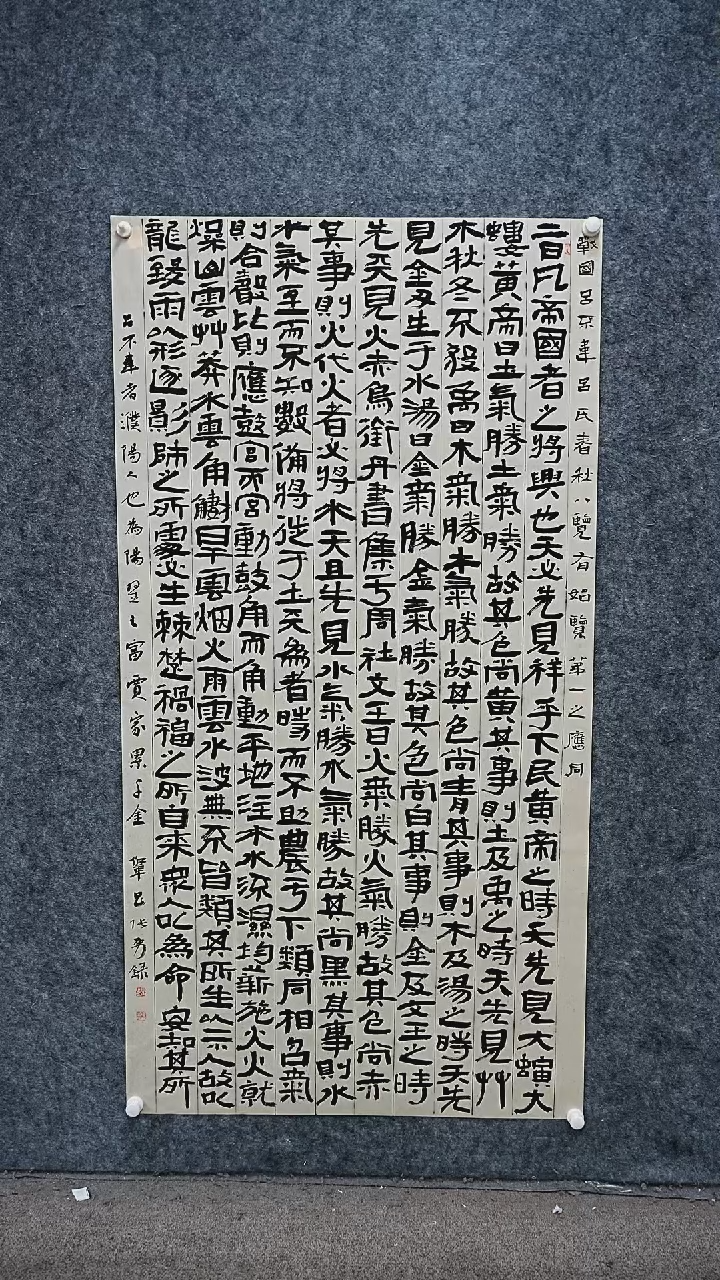 戰國呂不韋呂氏春秋八覽有始覽第一之應同
二曰凡帝國者之將興也天必先見祥乎下民黃帝之時天先見大螾大
螻黃帝曰土氣勝土氣勝故其色尚黃其事則土及禹之時天先見艸
木秋冬不殺禹曰木氣勝木氣勝故其色尚青其事則木及湯之時天先
見金刃生于水湯曰金氣勝金氣勝故其色尚白其事則金及文王之時
先天見火赤烏銜丹書集于周社文王曰火氣勝火氣勝故其色尚赤
其事則火代火者必將水天且先見水氣勝水氣勝故其尚黑其事則水
水氣至而不知數備將徙于土天為者時而不助農于下類同相召氣
則合聲比則應鼓宮而宮動鼓角而角動平地注水水流濕均薪施火火就
燥山雲艸莽水雲角觿旱雲烟火雨雲水波無不皆類其所生以示人故以
龍致雨以形逐影師之所處必生棘楚禍福之所自來眾人以為命安知其所
呂不韋者濮陽人也為陽翟之富賈家累千金 錄